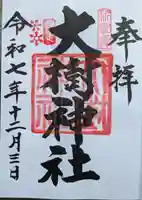 奉拝
大樹神社
令和七年十二月三日